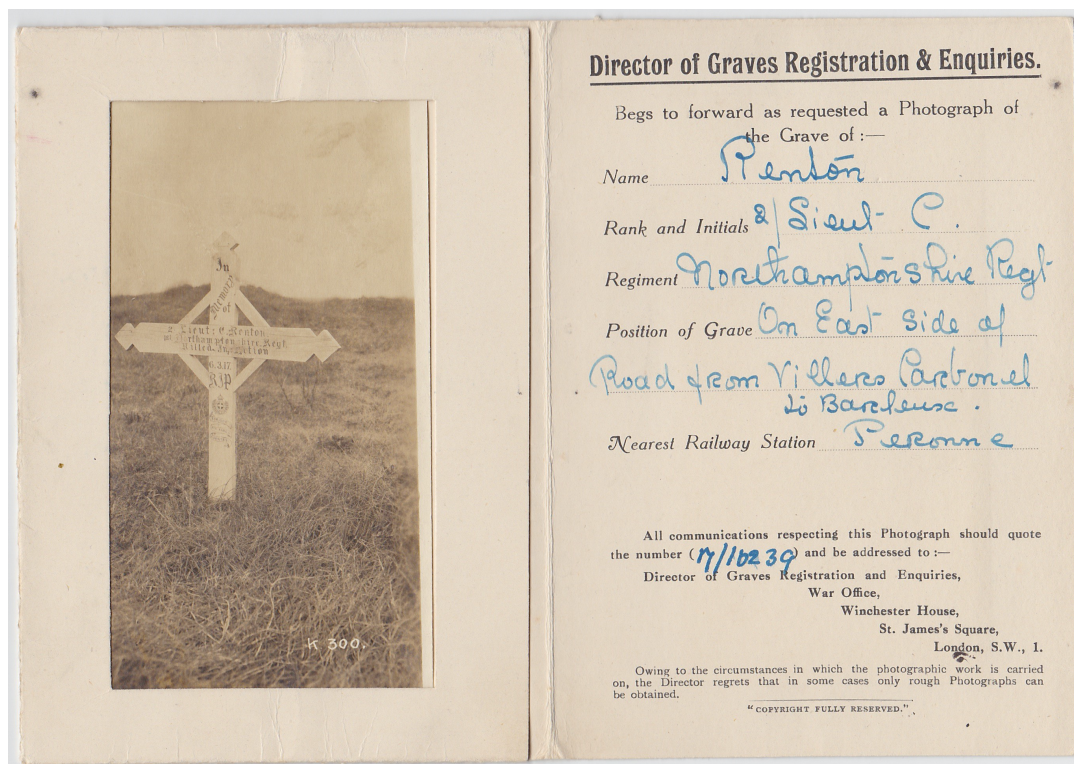 In
Memory
of
2 Lieut: C Renton
Northamptonshire Regt
Killed In Action
.3.17.
RIP
K 300.
Director of Graves Registration & Enquiries.
Begs to forward as requested a Photograph of
the Grave of :—
Name Renton
Rank and Initials 2/Lieut C.
Regiment Northamptonshire Regt
Position of Grave On East Side of
Road from Villers Carbonel
to Barleux.
Nearest Railway Station Peronne
All communications respecting this Photograph should quote
the number (17/10239) and be addressed to :—
Director of Graves Registration and Enquiries,
War Office,
Winchester House,
St. James's Square,
London, S.W., 1.
Owing to the circumstances in which the photographic work is carried
on, the Director regrets that in some cases only rough Photographs can
be obtained.
"COPYRIGHT FULLY RESERVED."